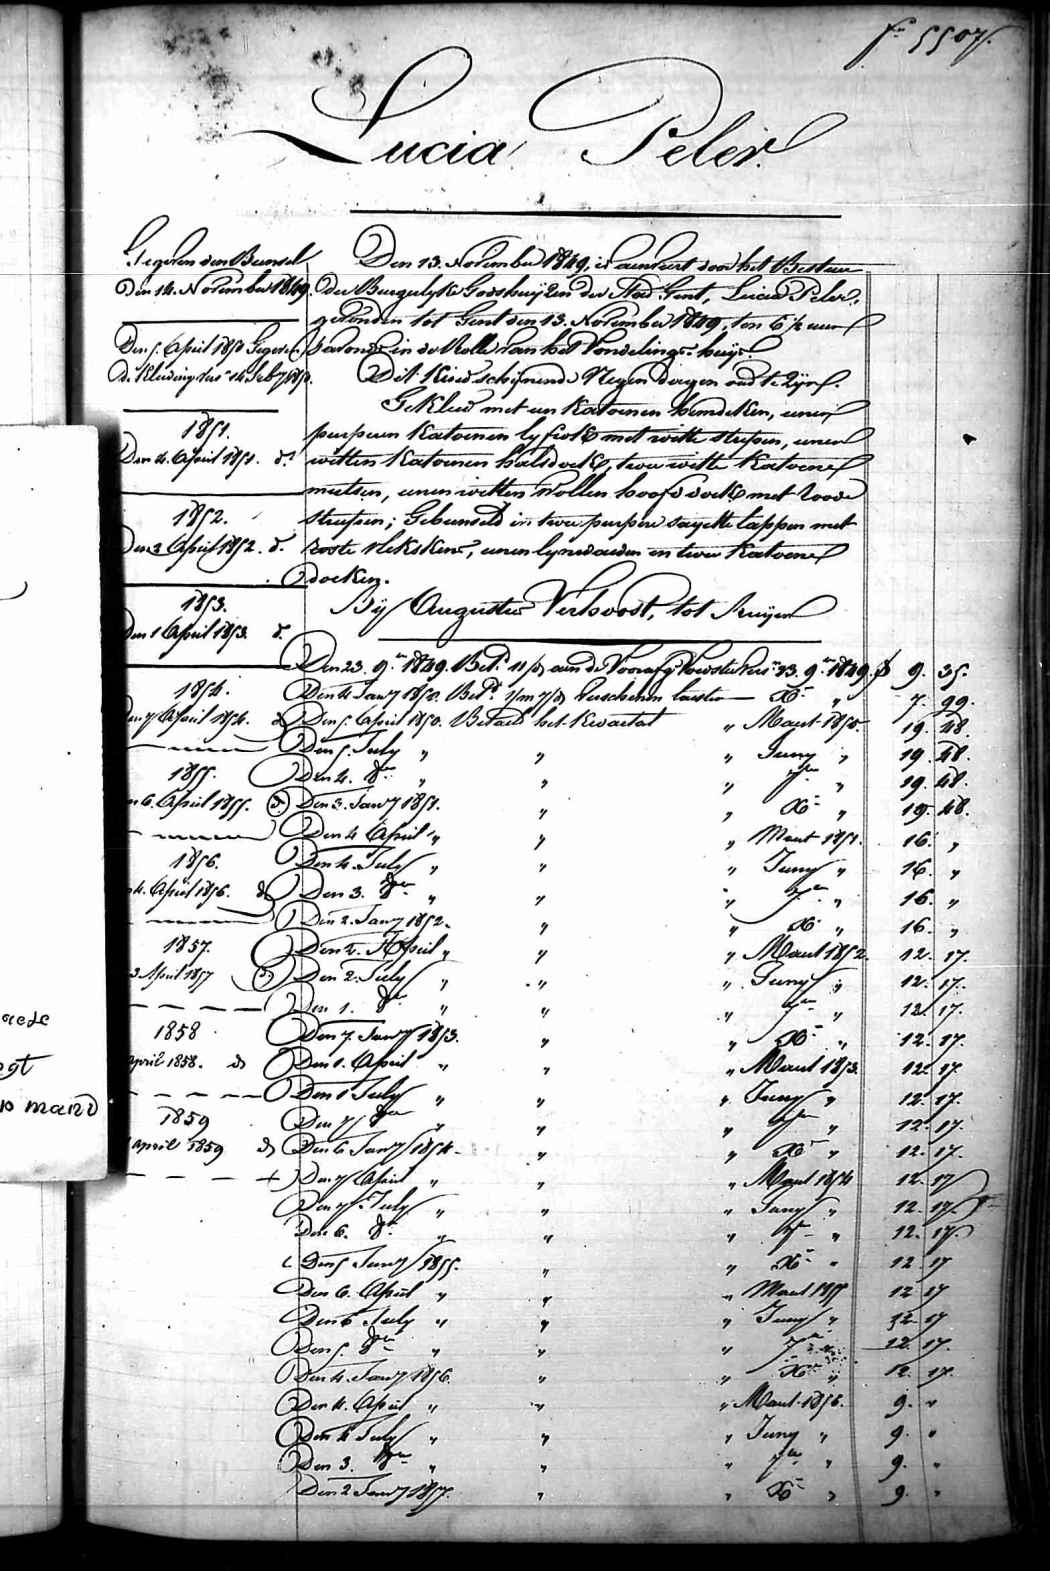 fo 5507.
Lucia Peler.
Gegeven den Bunsel
Den 14. November 1849.
Den 5. April 1850 Gegeven
de Kleiding
1851.
Den 4. April 1851. do
1852.
Den 3 April 1852. do
1853.
Den 1 April 1853. do
1854.
den 7 April 1854. do
1855.
n 6. April 1855. do
1856.
4. April 1856. do
1857.
3 April 1857 do
1858
april 1858. do
1859
april 1859 do
Den 13. November 1849, is aenveert door het Bestuur
der Burgerlyke Godshuyzen der Stad Gent, Lucia Peler,
gevonden tot Gent den 13. November 1849, ten 6 ½ uren
s'avonds in de Rolle van het Vondelings-huys.
Dit Kind schynende Negen dagen oud te zyn.
Gekleed met een katoenen hemdeken, eenen
purperen katoenen lyfrok met witte strepen, eenen
witten katoenen halsdoek, twee witte katoene
mutsen, eenen witten wollen hoofddoek met roode
strepen; Gebunseld in twee purpere sayette lappen met
rooste vlekskens, eenen lynwaeden en twee katoene
doeken.
By Augustus Verhoost, tot Ruyen
Den 23. 9er 1849. Betd aen de 23. 9er 1849. f 9. 35.
Den 4 Jany 1850. Betd Verschenen X " 7. 99.
Den 5. April 1850. Betaeld het Kwartael " Maert 1850. 19. 48.
Den 5. July " " " Juny " 19. 48.
Den 4. 8er " " " 7er " 19. 48.
Den 3. Jany 1851. " " X " 19. 48.
Den 4 April " " " Maert 1851. 16. "
Den 4. July " " " Juny " 16. "
Den 3. 8er " " " 7er " 16. "
Den 2. Jany 1852. " " X " 16. "
Den 4. April " " " Maert 1852. 12. 17.
Den 2. July " " " Juny " 12. 17.
Den 1. 8er " " " 7er " 12. 17.
Den 7. Jany 1853. " " X " 12. 17.
Den 1. April " " " Maert 1853. 12. 17.
Den 1 July " " " Juny " 12. 17.
Den 7 8er " " " 7er " 12. 17.
Den 6 Jany 1854. " " X " 12. 17.
Den 7 April " " " Maert 1854 12. 17
Den 7 July " " " Juny " 12. 17.
Den 6. 8er " " " 7er " 12. 17.
Den 5 Jany 1855. " " X " 12 17
Den 6. April " " " Maert 1855 12 17
Den 6 July " " " Juny " 12 17
Den 5. 8er " " " 7er " 12. 17.
Den 4. Jany 1856. " " X " 12. 17.
Den 4. April " " " Maert 1856. 9. "
Den 4 July " " " Juny " 9. "
Den 3. 8er " " " 7er " 9. "
Den 2 Jany 1857. " " X " 9. "
maend